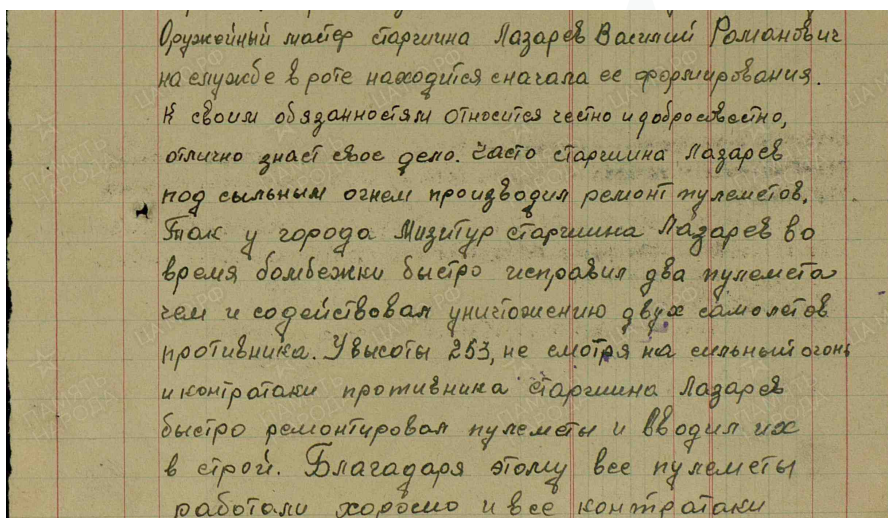 Оружейный мастер старшина Лазарев Василий Романович
на службе в роте находится сначала ее формирования.
К своим обязанностям относится честно и добросовестно,
отлично знает свое дело. Часто старшина Лазарев
под сыльным огнем производил ремонт пулеметов.
Так у города Мизитур старшина Лазарев во
время бомбежки быстро исправил два пулемета
чем и содействовал уничтожению двух самолетов
противника. У высоты 253, не смотря на сильный огонь
и контратаки противника старшина Лазарев
быстро ремонтировал пулеметы и вводил их
в строй. Благадаря этому все пулеметы
работали хорошо и все контратаки